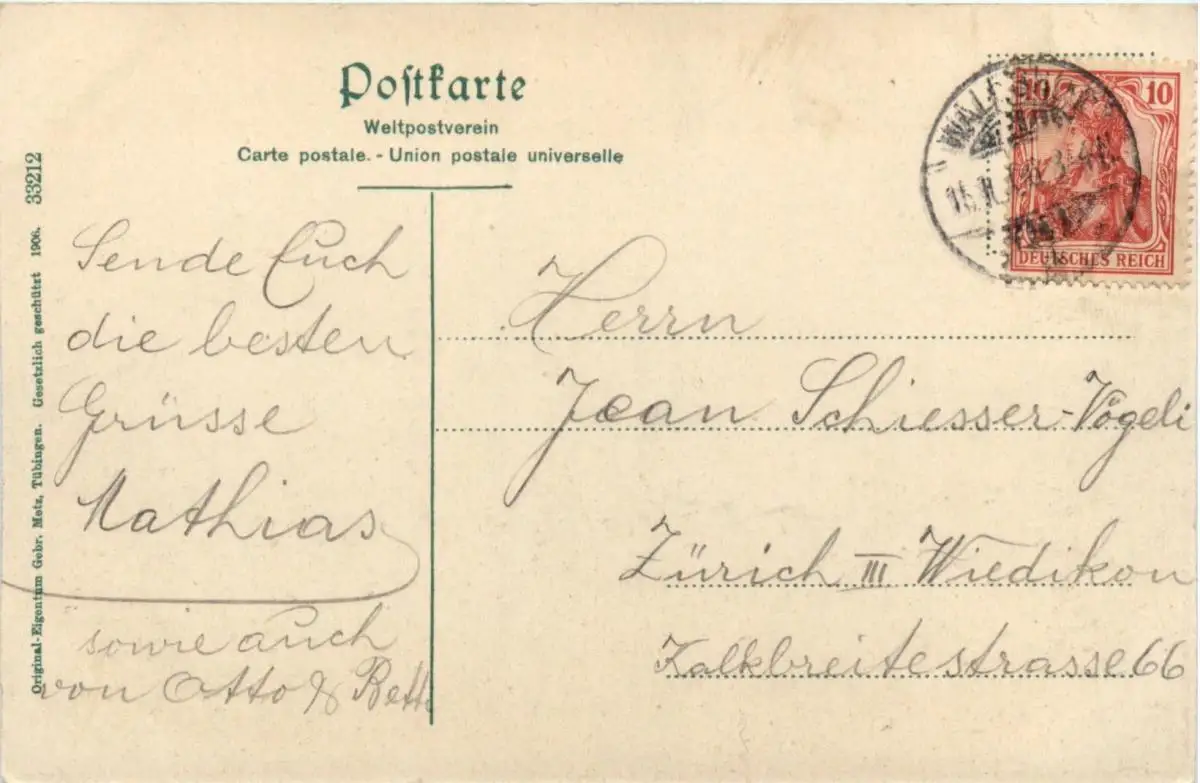 Postkarte
Weltpostverein
Carte postale. - Union postale universelle
33212
Original-Eigentum Gebr. Metz, Tübingen. Gesetzlich geschützt 1906.
Sende Euch
die besten
Grüsse
Mathias
sowie auch
von Otto &
10 10
DEUTSCHES REICH
Herrn
Jean Schiesser-Vögeli
Zürich III Wiedikon
Kalkbreitestrasse 66